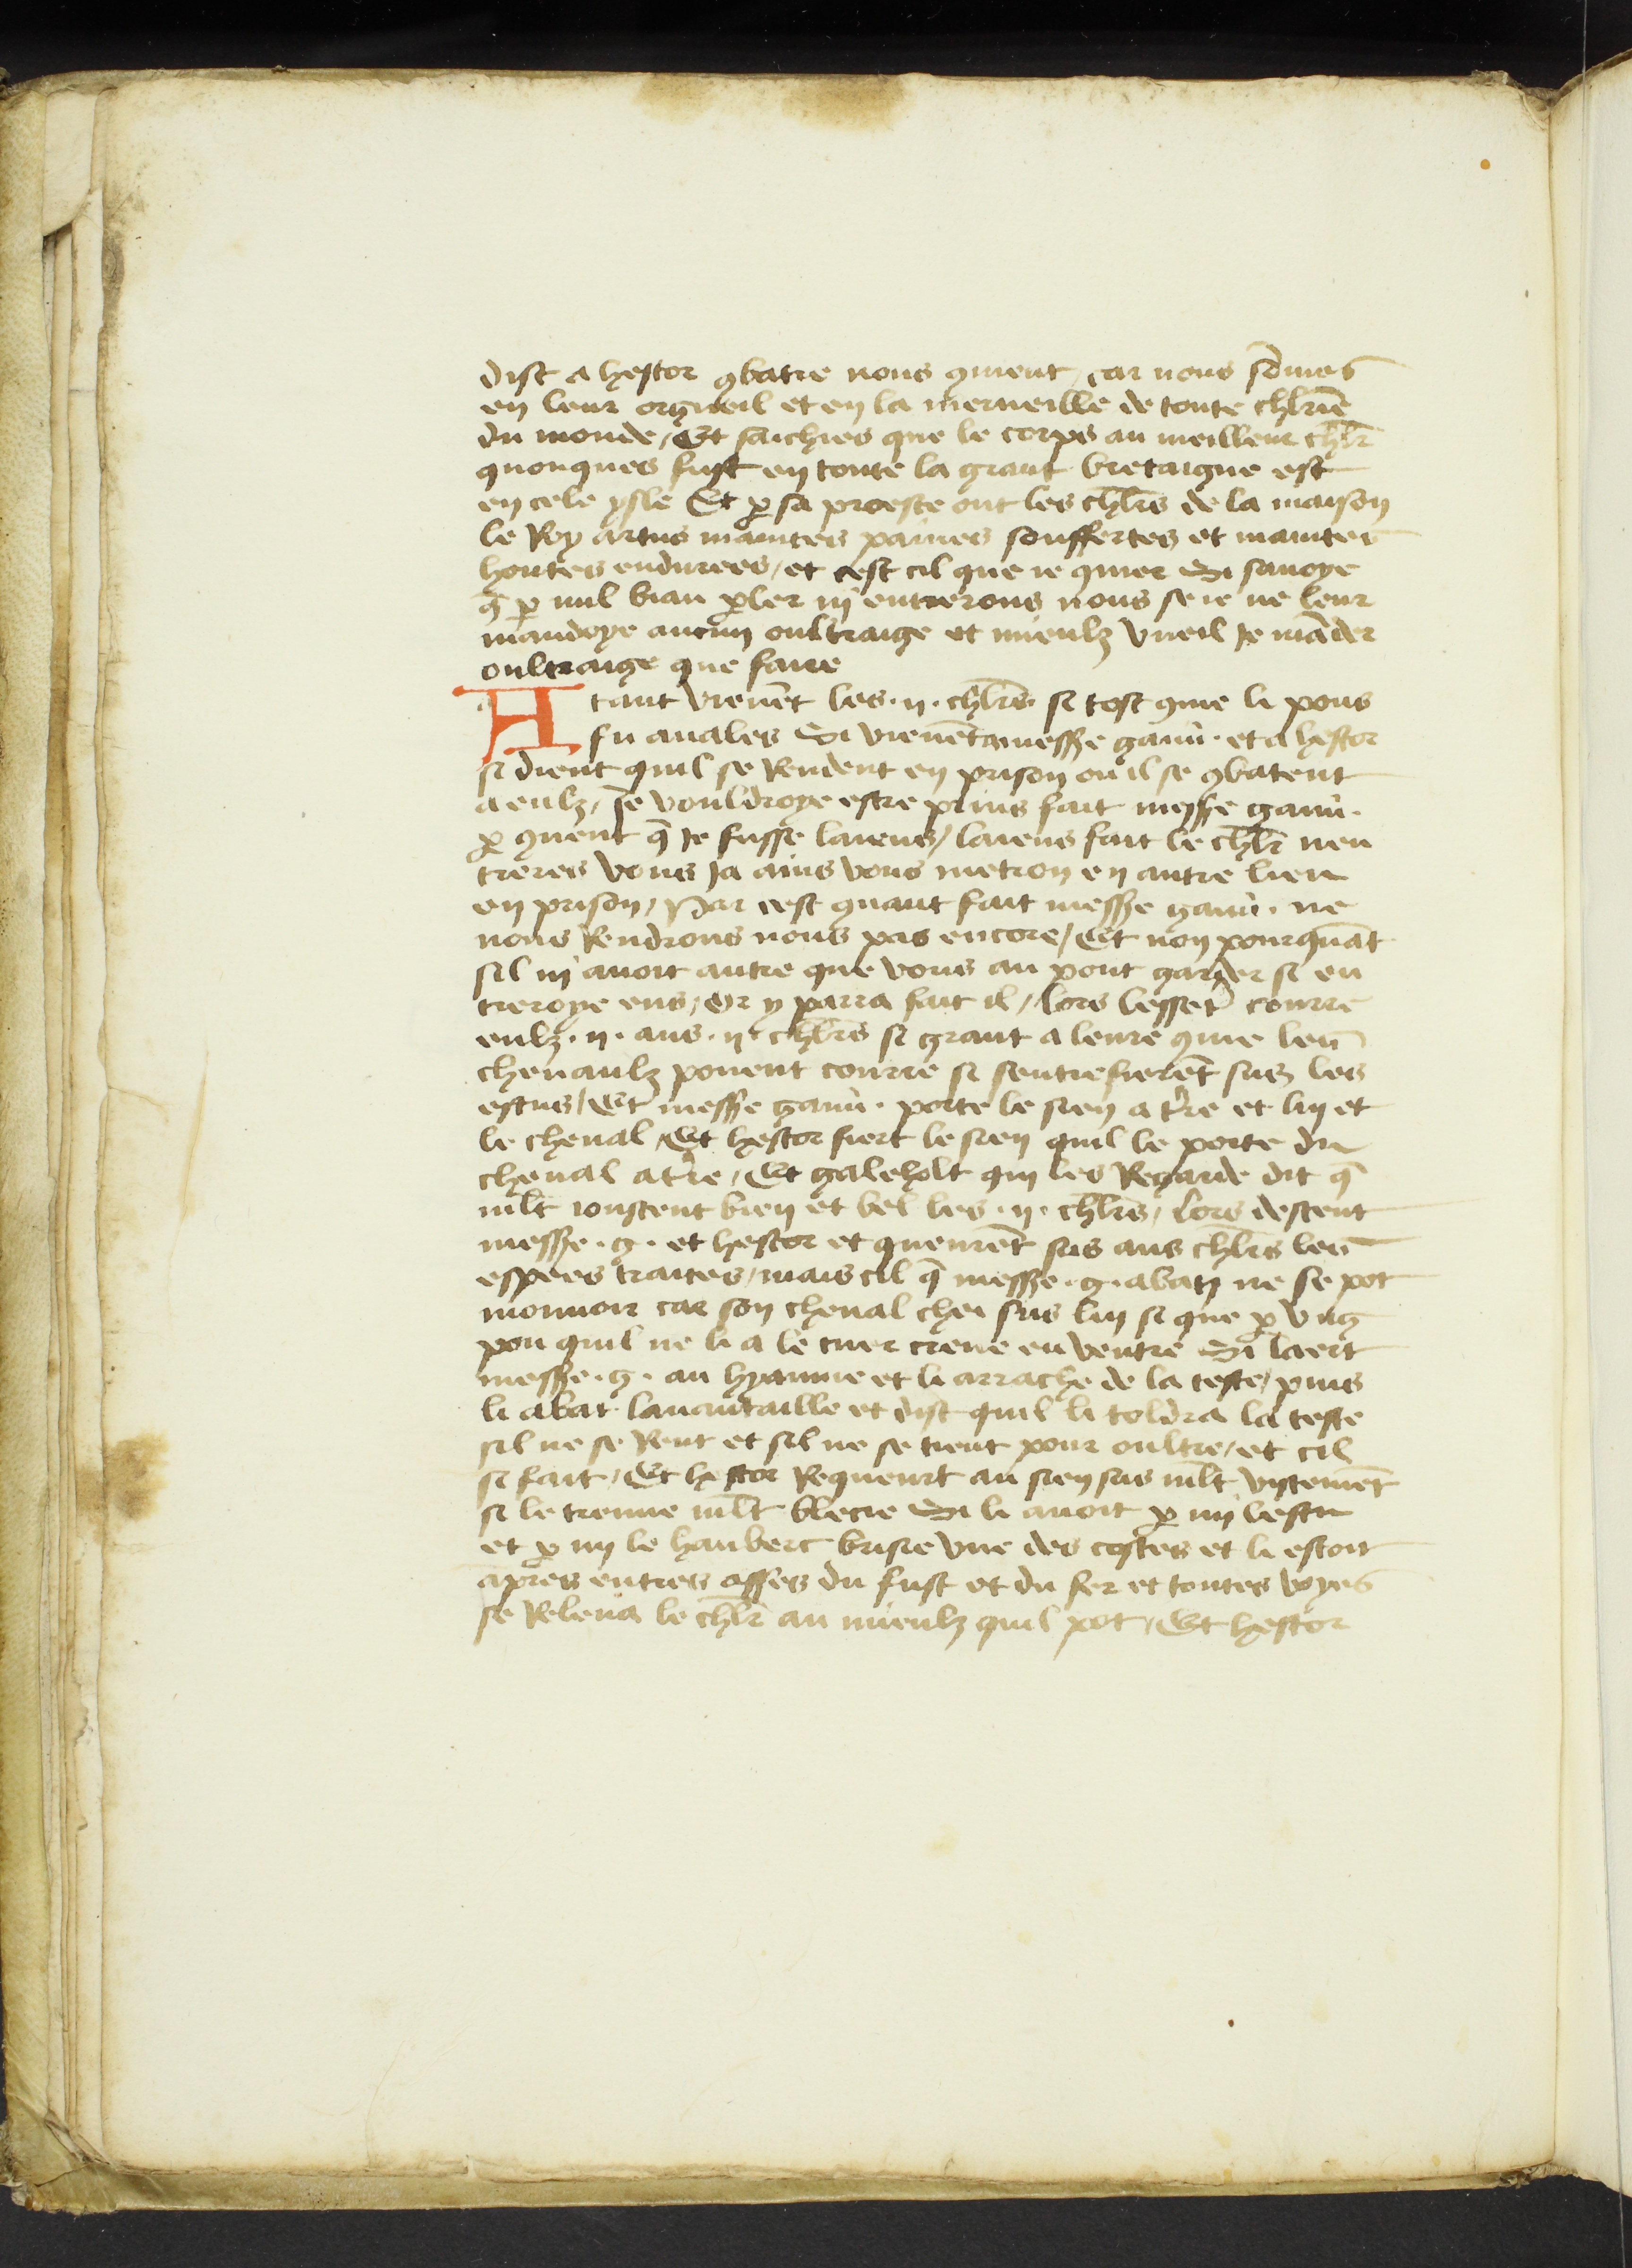 dist a hestor ꝯbatre nous ꝯuient / car nous sōmes
en leur orgueil et en la merueille de toute chl̄rie
du monde / Et saichies que le corps au meilleur chl̄r
quonques fust en toute la grant bretaigne est
en cele ysle Et ꝑ sa proesce ont les chl̄rs de la maison
le Roy artus maintes paines souffertes et maintes
hontes endurees / et cest cil que ie quier Si sauoye
q̄ ꝑ nul biau ꝑler ny entrerons nous se ie ne leur
mandoye aucun oultraige et mieulz vueil Je māder
oultraige que faire
A tant vienēt les .ij. chl̄rs si tost ꝯme li pons
fu auales Si vienēt a messe gauū. et a hestor
si dient quil se Rendent en prison ou il se ꝯbatent
a eulz / Je vouldroye estre prius fait messe gauū.
ꝑ ꝯuent q̄ Je fusse laiens / laiens fait le chl̄r nen
treres vous Ja ains vous metron en autre lieu
en prison / Par cest quant fait messe gauū. ne
nous Rendrons nous pas encore / Et non pourquāt
sil ny auoit autre que vous au pont garder si en
treroye ens / Or y parra fait il / lors lesset̄ courre
eulz .ij. aus .ij. chl̄rs si grant a leure ꝯme leu᷑
cheuaulz poueut courre si sentrefierēt sus les
escus / Et messe gauū. porte le sien a t̄re et luy et
le cheual / Et hestor fiert le sien quil le porte du
cheual a t̄re / Et galeholt qui les Regarde dit q̄
ml̄t ioustent bien et bel les .ij. chl̄rs / Lors descent
messe .g. et hestor et queurēt sus aus chl̄rs leu᷑
espees traites / mais cil q̄ messe .g. abati ne se pot
mouuoir car son cheual chei sus luy si que ꝑ vng
pou quil ne li a le cuer creue eu ventre Si laert
messe .g. au hyaume et li arrache de la teste / puis
li abat lauantaille et dist quil li toldra la teste
sil ne se Rent et sil ne se tient pour oultre / et cil
si fait / Et hestor Requeurt au sien sus ml̄t vistemēt
si le treuue ml̄t blecie Si li auoit ꝑ my lescu
et ꝑ my le hauberc brisie vne des costes et li estoit
apres entres asses du fust et du fer et toutes voyes
se Releua le chl̄r au mieulz quil pot / Et hestor